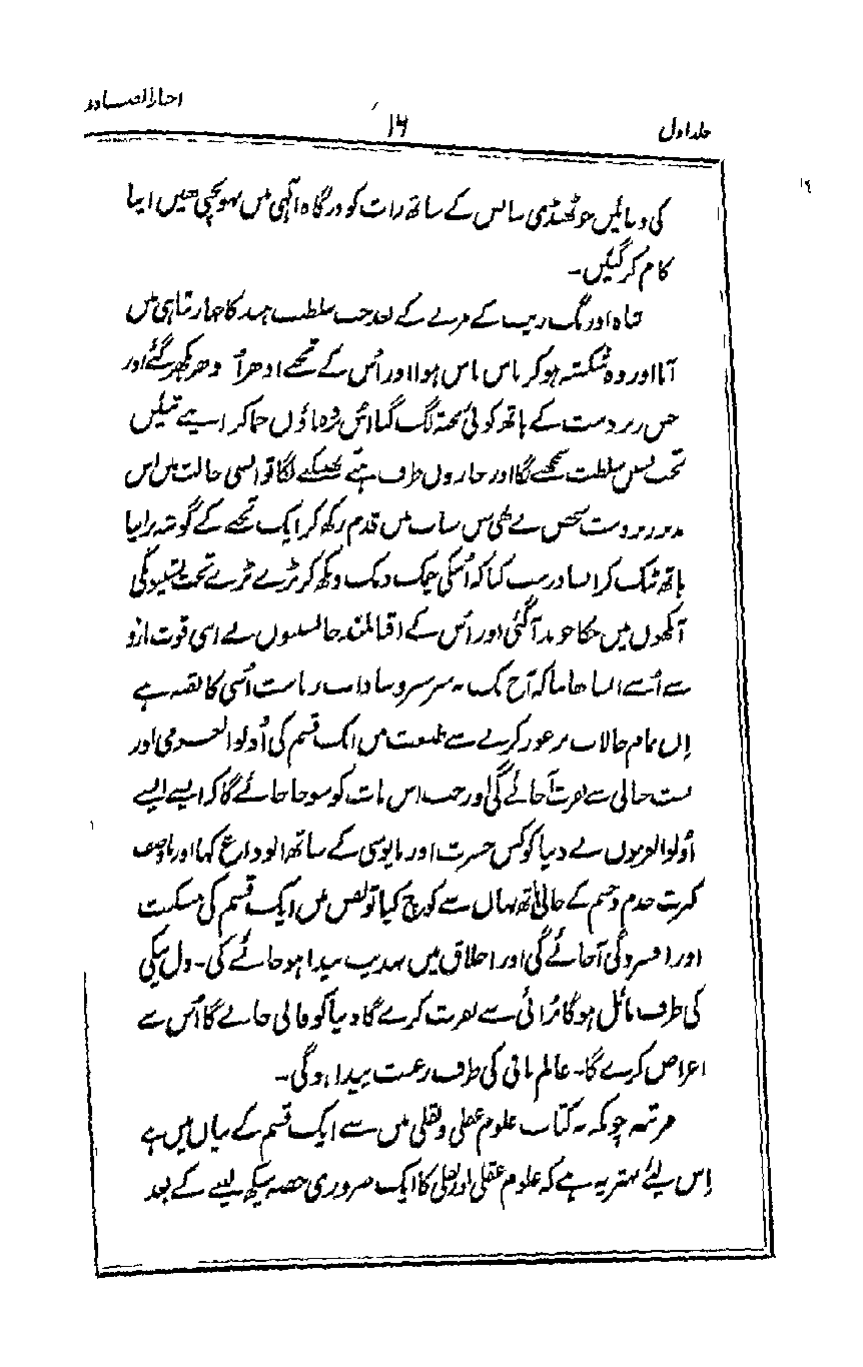 اخبار الصنادید
۱۶
جلد اول
کی دعائیں جو ٹھنڈی سانس کے ساتھ رات کو درگاہ الٰہی میں پہونچی تھیں اپنا
کام کرگئیں۔
شاہ اورنگ زیب کے مرنے کے بعد جب سلطنت ہند کا جہاز تباہی میں
آیا اور وہ شکستہ ہوکر پاش پاش ہوا اور اُس کے تختے ادھر اُدھر بکھر گئے اور
جس زبردست کے ہاتھ کوئی تختہ لگ گیا اُس پر پاؤں جما کر اپنے تئیں
تخت نشین سلطنت سمجھنے لگا اور چاروں طرف بہتے پھرنے لگا تو ایسی حالت میں اس
زبردست شخص نے بھی اس سیلاب میں قدم رکھ کر ایک تختے کے گوشہ پر اپنا
ہاتھ ٹیک کر ایسا درست کیا کہ اُسکی چمک دمک دیکھ کر بڑے بڑے تخت نشینوں کی
آنکھوں میں چکا چوند آگئی اور اُس کے اقبالمند جانشینوں نے اپنی قوت بازو
سے اُسے ایسا تھاما کہ آج تک یہ سرسبز و شاداب ریاست اُسی کا بقیہ ہے
اِن تمام حالات پر غور کرنے سے طبیعت میں ایک قسم کی اُولوالعزمی اور
پست حالی سے نفرت آجائے گی اور جب اس بات کو سوچا جائے گا کہ ایسے ایسے
اُولوالعزموں نے دنیا کو کس حسرت اور مایوسی کے ساتھ الوداع کہا اور باوصف
کثرت خدم و حشم کے خالی ہاتھ یہاں سے کوچ کیا تو نفس میں ایک قسم کی مسکنت
اور افسردگی آجائے گی اور اخلاق میں تہذیب پیدا ہو جائے گی۔ دل نیکی
کی طرف مائل ہوگا بُرائی سے نفرت کرے گا دنیا کو فانی جانے گا اُس سے
اعراض کرے گا۔ عالم باقی کی طرف رغبت پیدا ہوگی۔
مرتبہ چونکہ یہ کتاب علوم عقلی و نقلی میں سے ایک قسم کے بیان میں ہے
اِس لئے بہتر یہ ہے کہ علوم عقلی اور نقلی کا ایک ضروری حصہ سیکھ لینے کے بعد